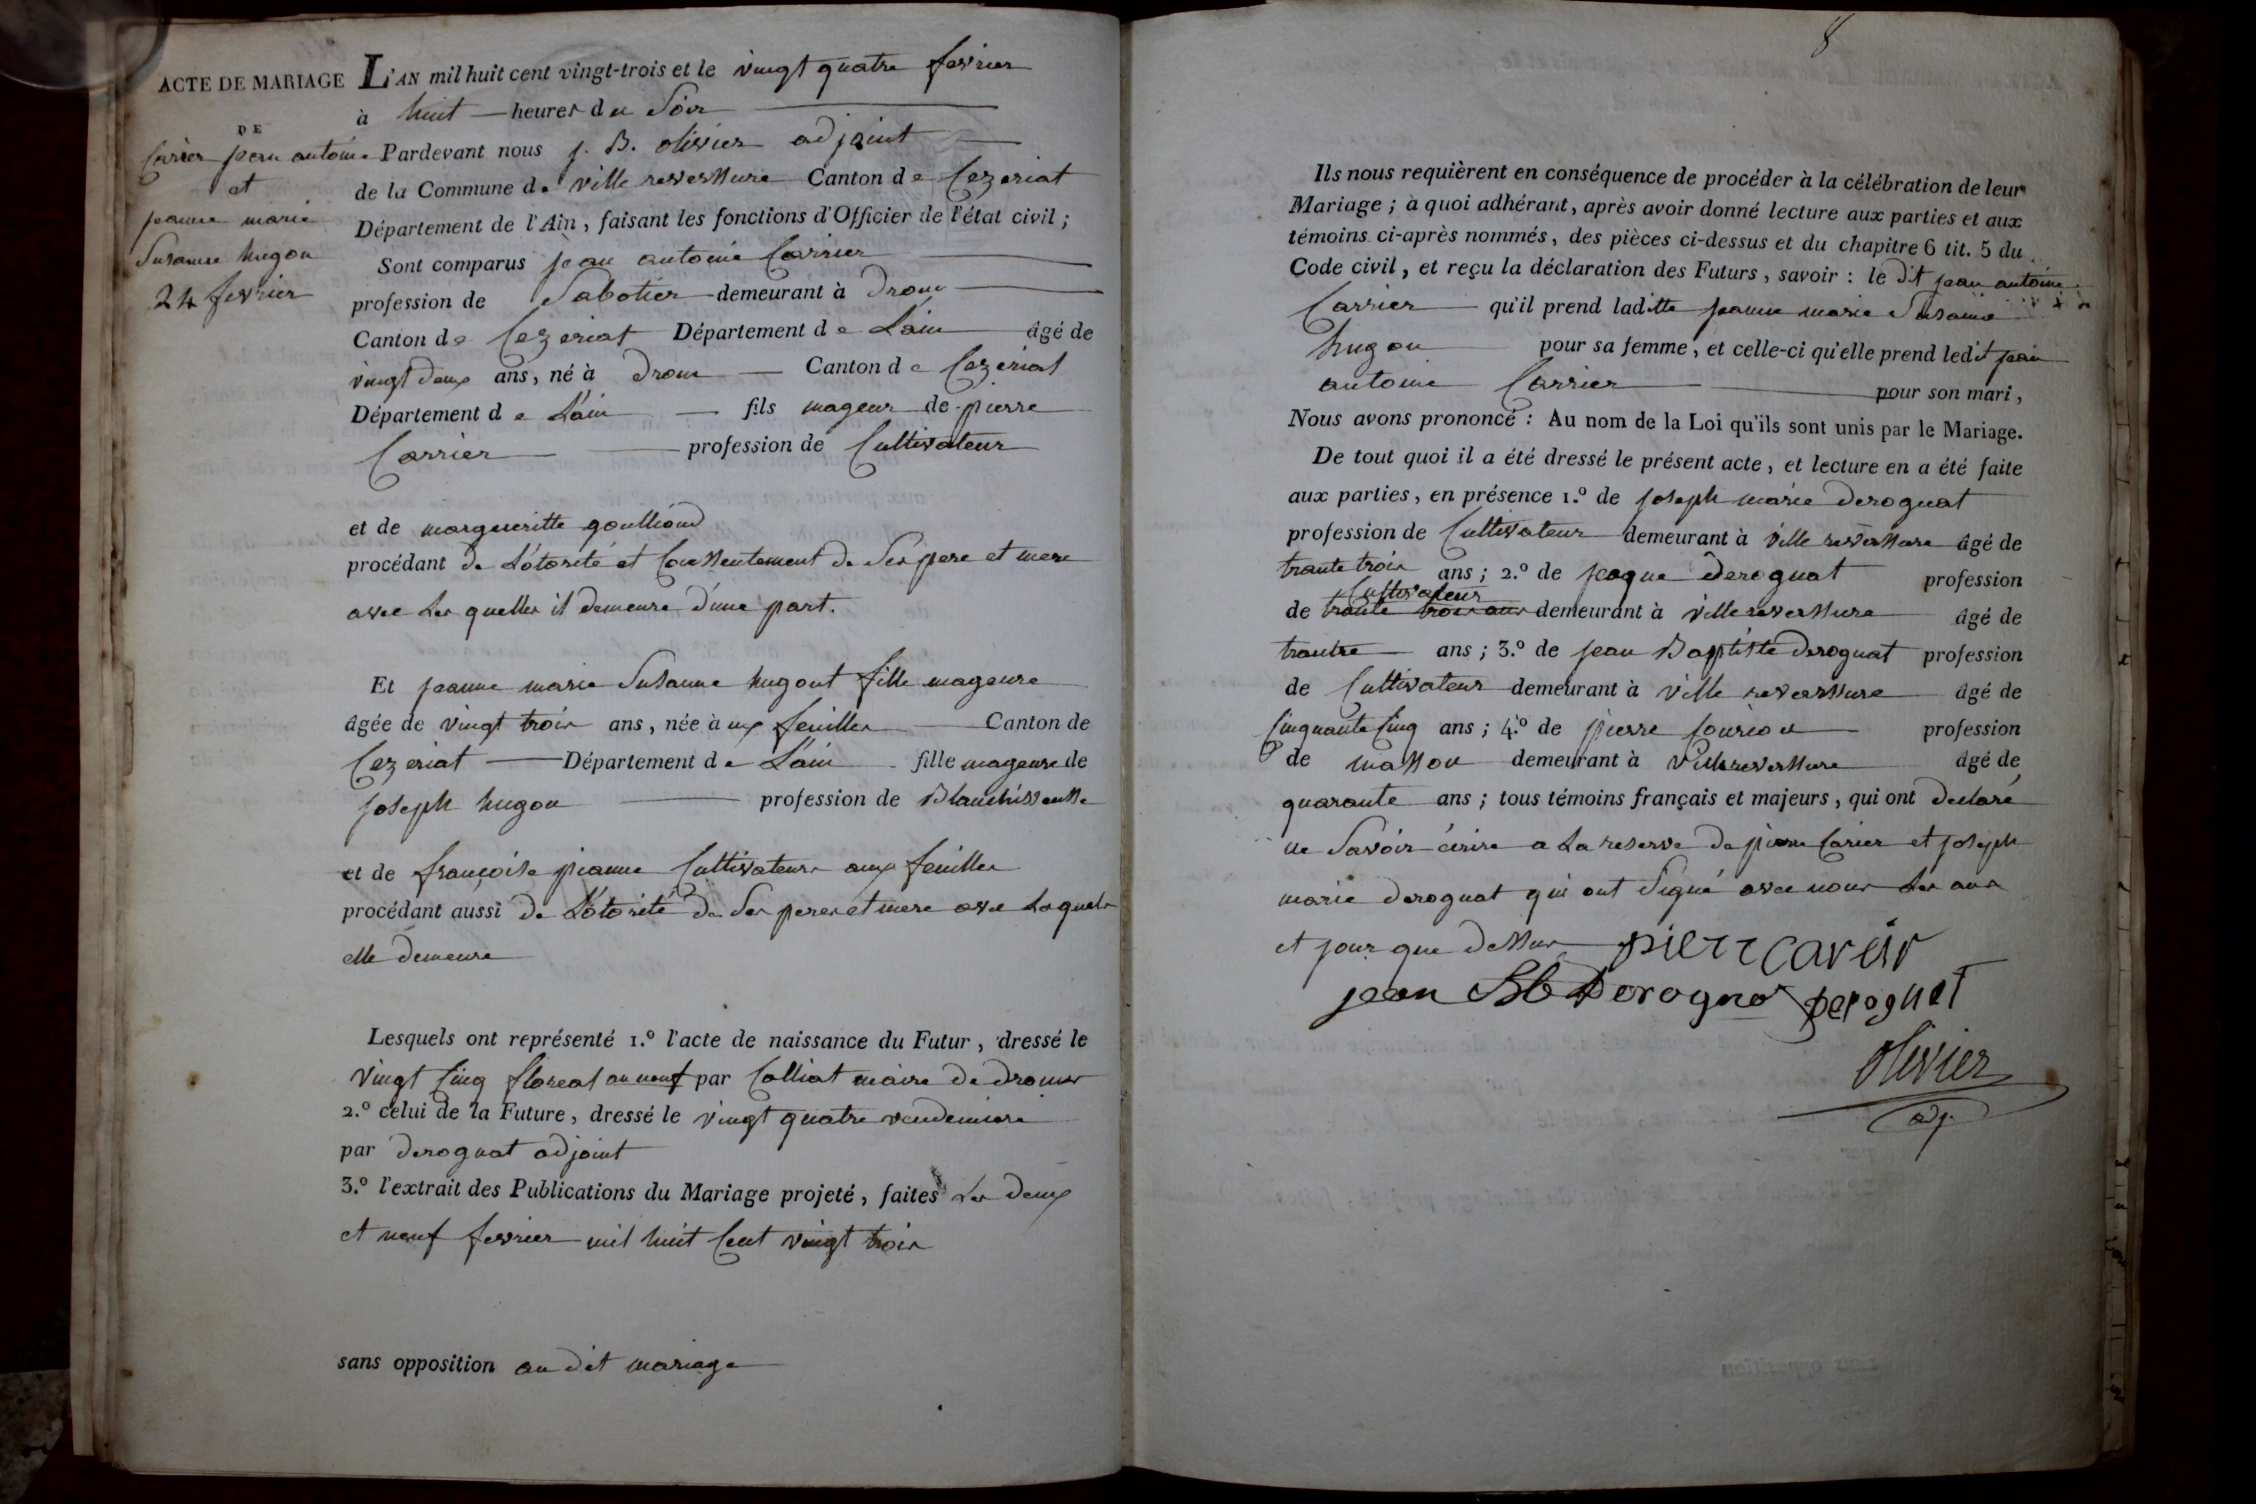 ACTE DE MARIAGE
DE
Carrier jean antoine
et
jeanne marie
Susanne hugon
24 fevrier
L'AN mil huit cent vingt-trois et le vingt quatre fevrier
à huit heures du Soir
Pardevant nous j. B. olivier adjoint
de la Commune de ville reverssure Canton de Cezeriat
Département de l'Ain, faisant les fonctions d'Officier de l'état civil;
Sont comparus jean antoine Carrier
profession de Sabotier demeurant à Drom
Canton de Cezeriat Département de Lain âgé de
vingt deux ans, né à Drom Canton de Cezeriat
Département de L'ain fils mageur de pierre
Carrier profession de Cultivateur
et de margueritte goullioud
procédant de L'otorité et Conssentement de Ses pere et mere
avec Les quelles il demeure d'une part.
Et jeanne marie Susanne hugont fille mageure
âgée de vingt trois ans, née à ux feuilles Canton de
Cezeriat Département de L'ain fille mageure de
joseph hugon profession de Blanchisseusse
et de françoise pianne Cultivateurs aux feuilles
procédant aussi de L'otorité de Ses peres et mere avec Laquels
elle demeure
Lesquels ont représenté 1.º l'acte de naissance du Futur, dressé le
vingt Cinq floreal an neuf par Colliat maire de Drom
2.º celui de la Future, dressé le vingt quatre vendemiere
par Deroguat adjoint
3.º l'extrait des Publications du Mariage projeté, faites Les Deux
et neuf fevrier mil huit Cent vingt trois
sans opposition au dit mariage
8
Ils nous requièrent en conséquence de procéder à la célébration de leur
Mariage; à quoi adhérant, après avoir donné lecture aux parties et aux
témoins ci-après nommés, des pièces ci-dessus et du chapitre 6 tit. 5 du
Code civil, et reçu la déclaration des Futurs, savoir: le dit jean antoine
Carrier qu'il prend laditte jeanne marie Susanne
hugon pour sa femme, et celle-ci qu'elle prend ledit jean
antoine Carrier pour son mari,
Nous avons prononcé: Au nom de la Loi qu'ils sont unis par le Mariage.
De tout quoi il a été dressé le présent acte, et lecture en a été faite
aux parties, en présence 1.º de joseph marie Deroguat
profession de Cultivateur demeurant à ville reverssure âgé de
trante trois ans; 2.º de jcaque Deroguat profession
Cultivateur
de trante trois ans demeurant à ville reverssure âgé de
trantre ans; 3.º de jean Baptiste Deroguat profession
de Cultivateur demeurant à ville reverssure âgé de
Cinquante Cinq ans; 4.º de pierre fourion profession
de masson demeurant à ville reverssure âgé de
quarante ans; tous témoins français et majeurs, qui ont declaré
ne Savoir écrire a La reserve de pierre Carier et joseph
marie Deroguat qui ont Signé avec nous Les ans
et jour que Dessus pierr carier
jean Bte Derognat Derognat
olivier
adj.